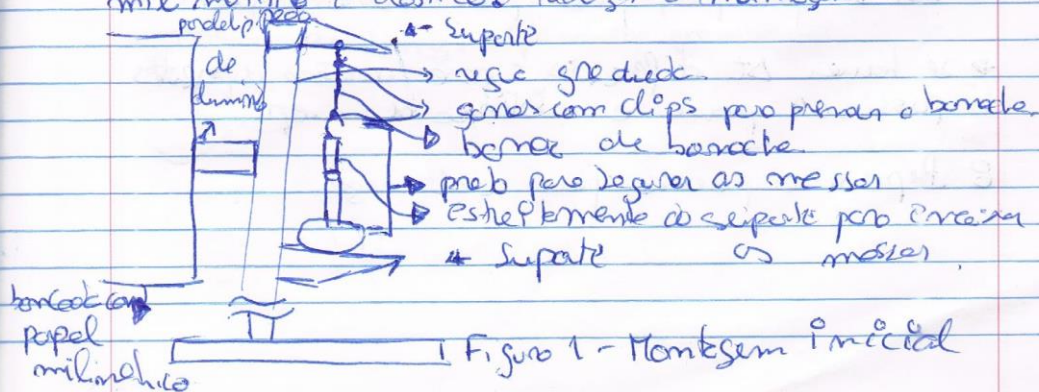 paralelipipedo
de
alumínio
Suporte
regua graduada.
ganchos com clips para prender a borracha
barra de borracha
prato para segurar as massas
estreitamento do suporte para encaixar
as massas.
Suporte
bancada com
papel
milimétrico
Figura 1 - Montagem inicial